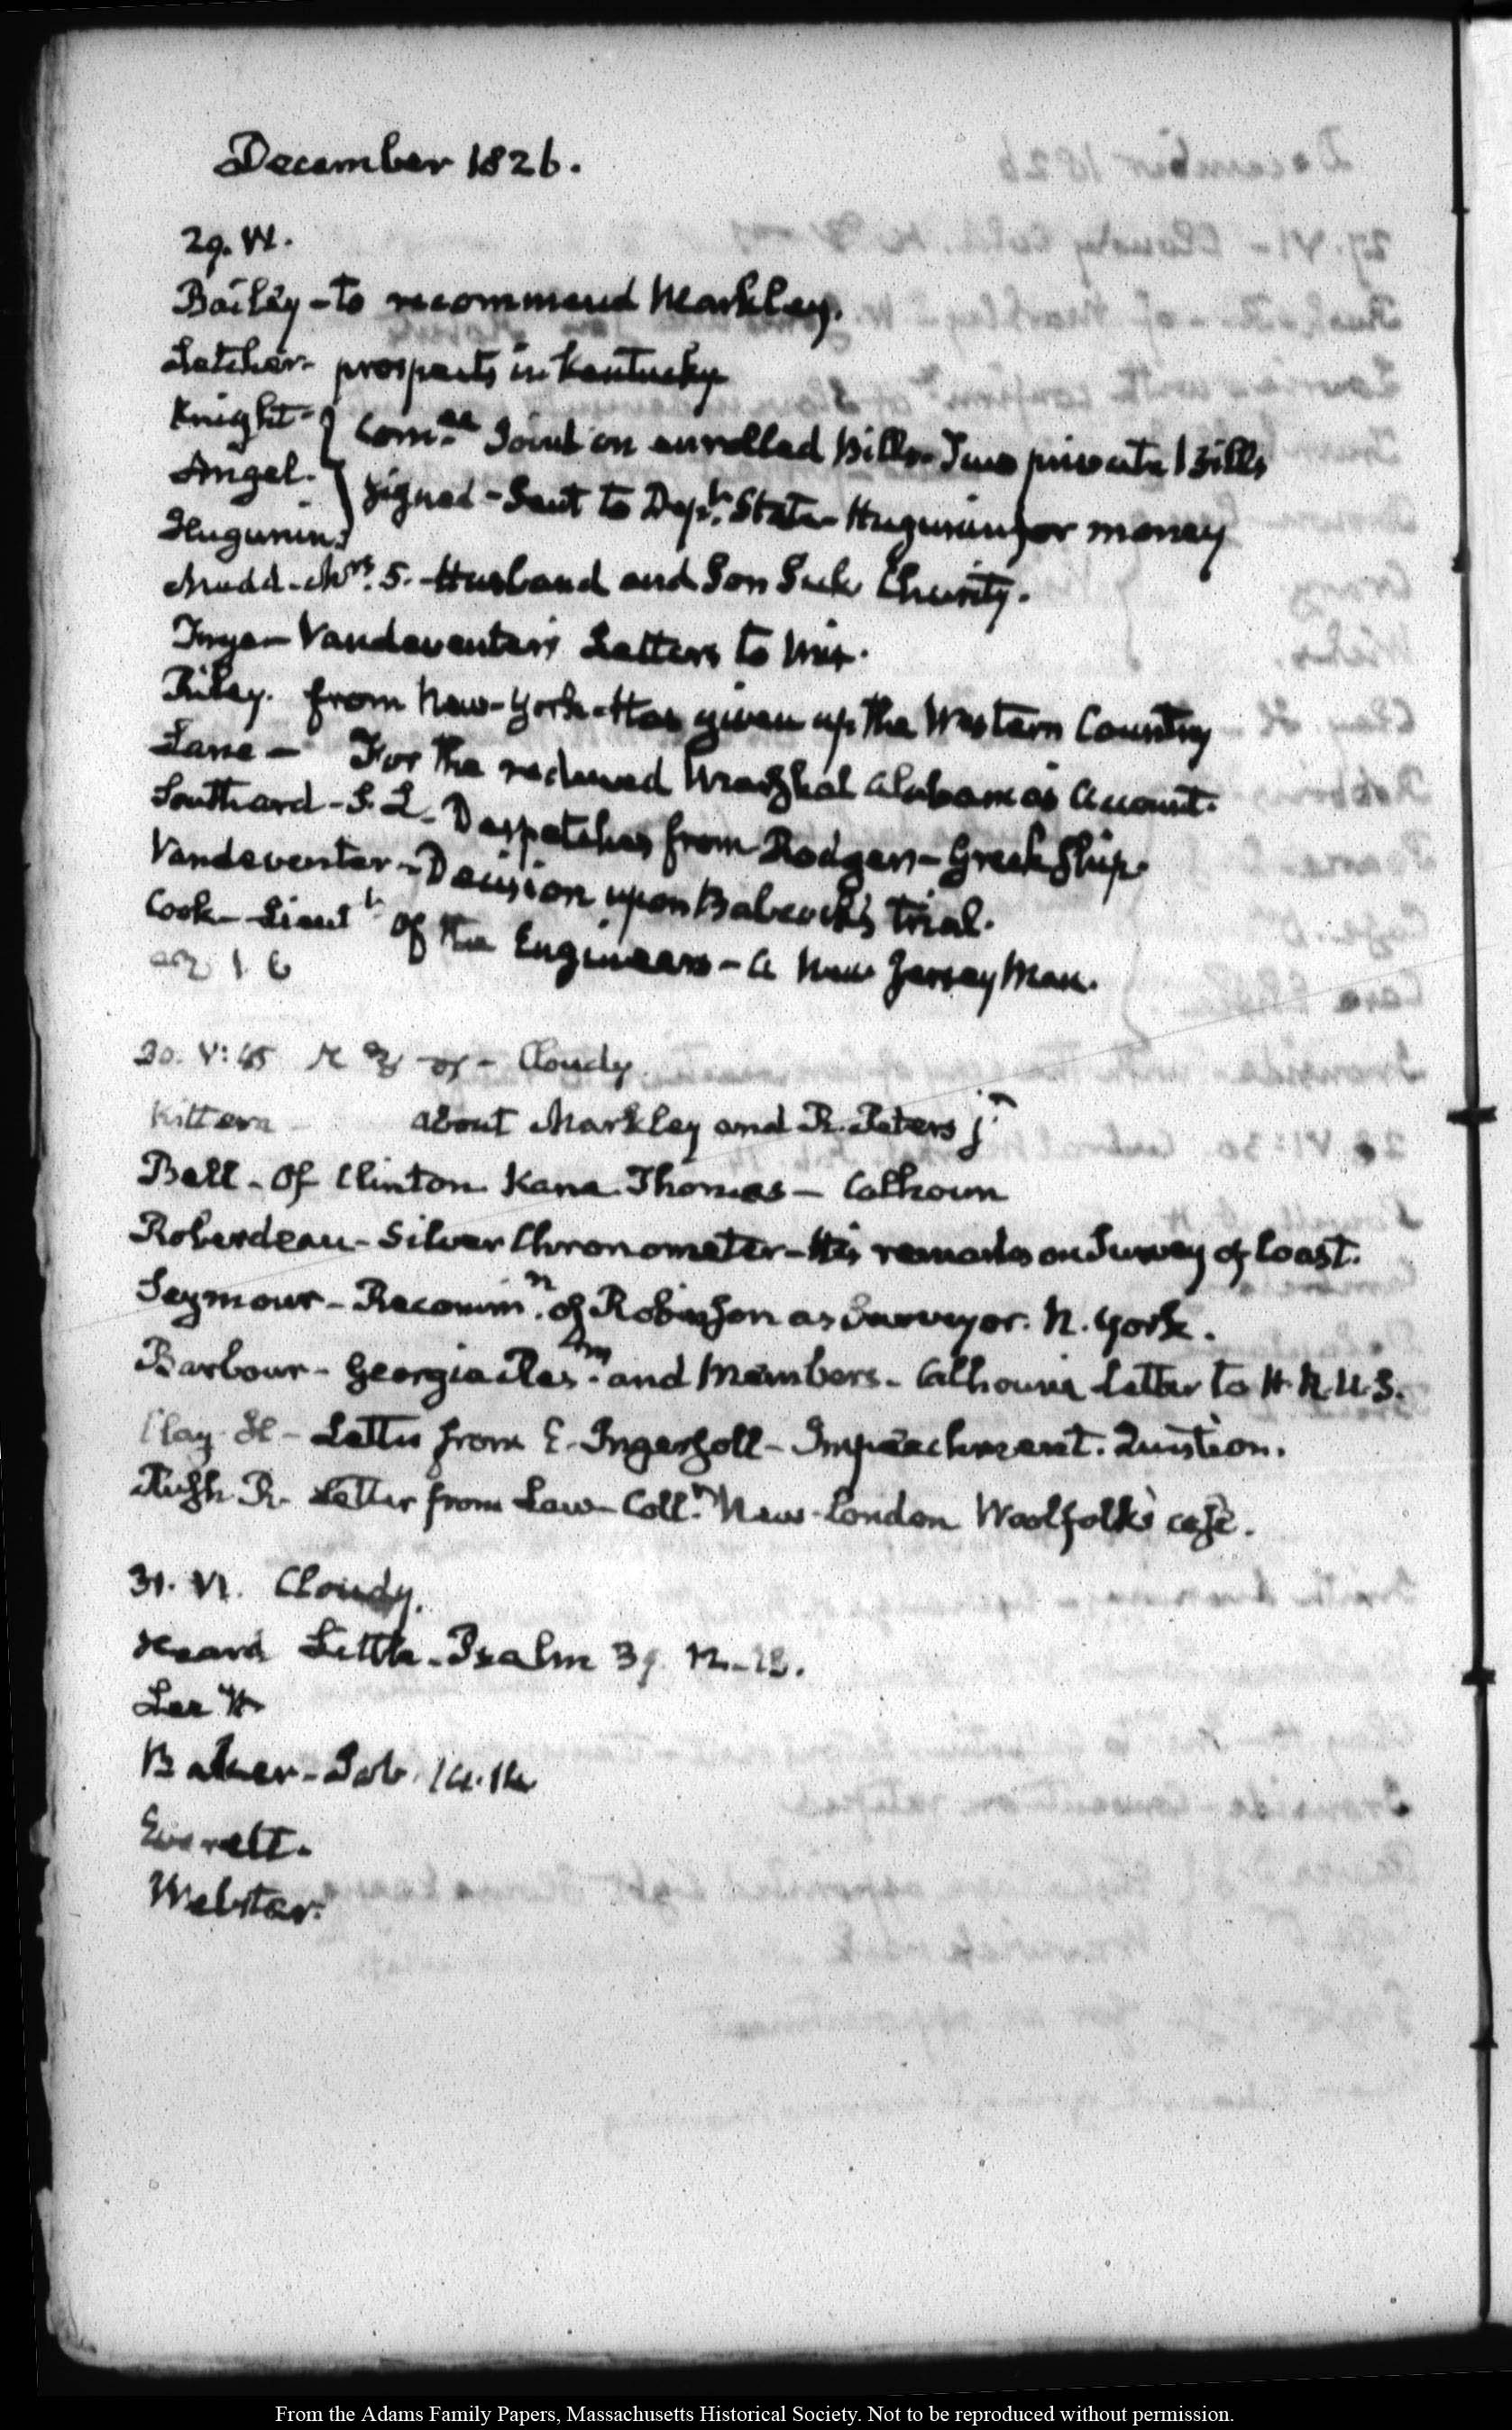 December 1826.
29. VI.
Bailey - to recommend Markley.
Letcher - prospects in Kentucky
Knight - } Com.ee Joint on enrolled Bills - Two private Bills
Angel. } signed - Sent to Dep.t State - Hugunin for money
Hugunin }
Mudd - Mrs. S. - Husband and Son Sick Charity.
- Vandeventer's Letters to Mix.
Riley. from New-York - Has given up the Western Country
Lane - For the reduced Marshal Alabama's Account.
Southard - S. L. Despatches from Rodgers - Greek Ship.
Vandeventer - Decision upon Babcock's trial.
Cook - Lieut.t of the Engineers - A New Jersey Man.
30. V:45 - Cloudy
Kittera - about Markley and R. Peters jr
Ball - Of Clinton Kane Thomas - Calhoun
Roberdeau - Silver Chronometer - His remarks on Survey of Coast.
Seymour - Recomm.n of Robinson as Surveyor. N. York.
Barbour - Georgia and Members - Calhoun's Letter to H. R. U. S.
Clay H - Letter from E. Ingersoll - Impeachment. Question.
Rush. R. Letter from Law - Coll.r New-London Woolfolk's case.
31. VI. Cloudy.
Heard Little - Psalm 39. 12-13.
Lee
Baker - Job. 14.14
Everett.
Webster.
From the Adams Family Papers, Massachusetts Historical Society. Not to be reproduced without permission.